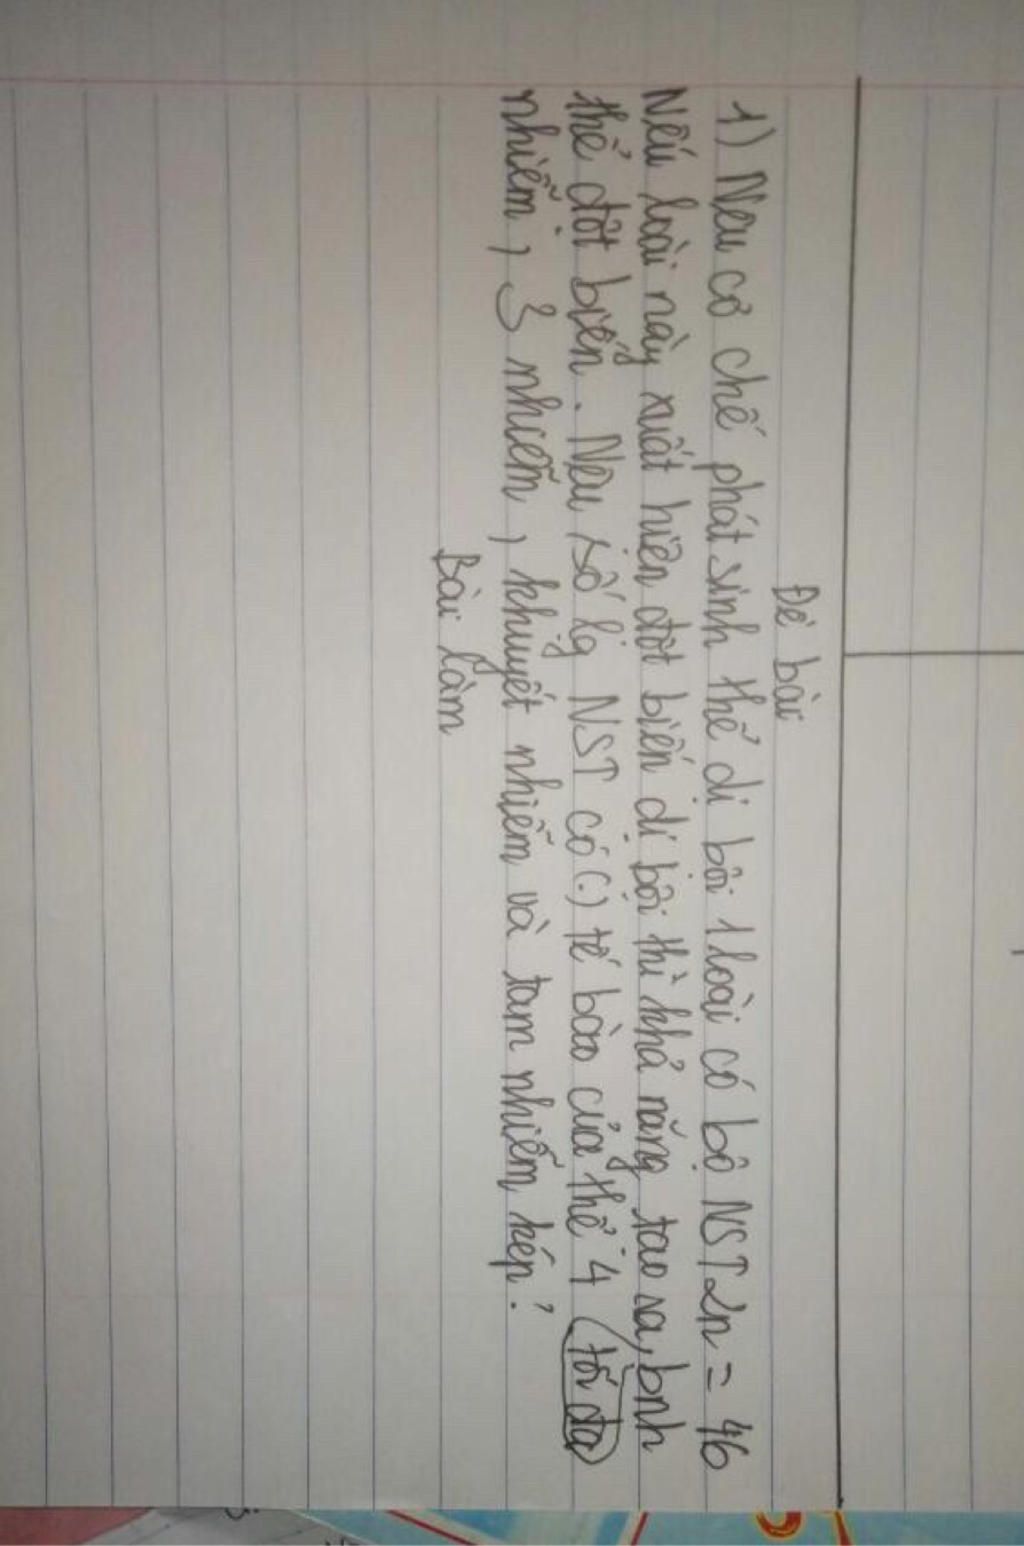 Đề bài
1) Nêu cơ chế phát sinh thể dị bội 1 loài có bộ NST 2n = 46
Nếu loài này xuất hiện đột biến dị bội thì khả năng tạo ra, bnh
thể đột biến. Nêu số lg NST có (.) tế bào của thể 4 (tối đa)
nhiễm, 3 nhiễm, khuyết nhiễm và tam nhiễm kép?
Bài làm